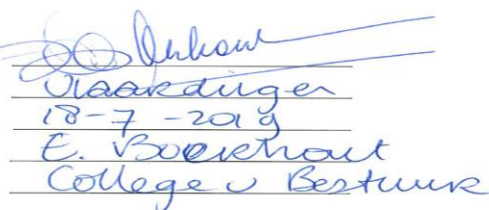 Vlaardingen
18-7-2019
E. Boekhout
College v Bestuur